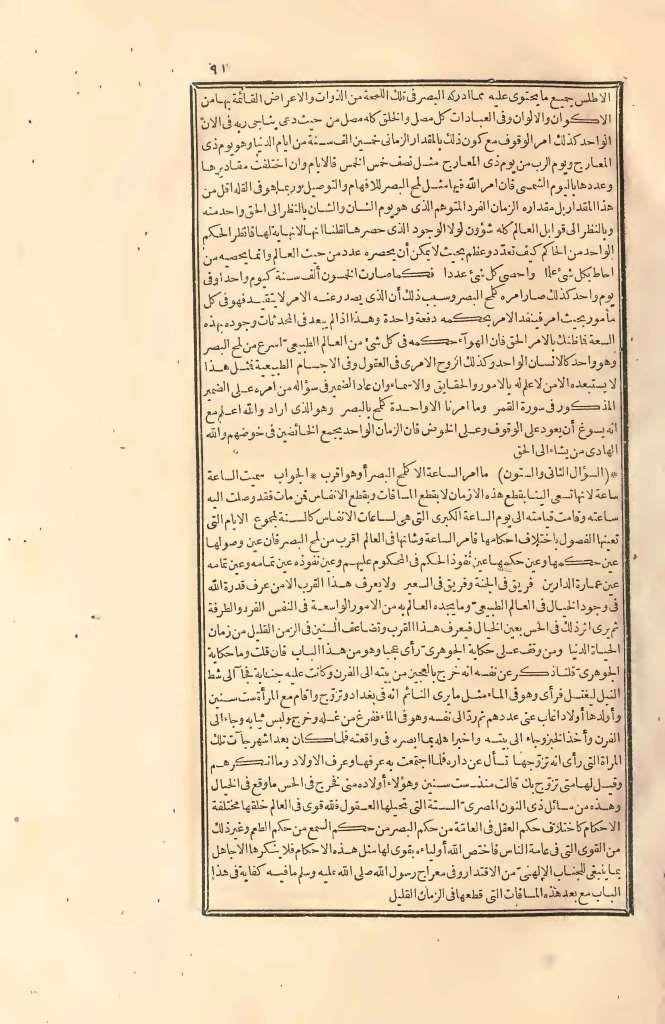 ٩١
الاطلس جميع ما يحتوى عليه مما ادركه البصر فى تلك اللمحة من الذوات والاعراض القائمة بها من
الاكوان والالوان وفى العبادات كل مصل والخلق كله مصل من حيث دعى يناجى ربه فى الان
الواحد كذلك امر الوقوف مع كون ذلك بالمقدار الزمانى خمسين الف سنة من ايام الدنيا وهو يوم ذى
المعارج ويوم الرب من يوم ذى المعارج مثل نصف خمس الخمس فالايام وان اختلفت مقاديرها
وعددها باليوم الشمسى فان امر الله فيها مثل لمح البصر للافهام والتوصيل وربما هو فى القلة اقل من
هذا المقدار بل مقداره الزمان الفرد المتوهم الذى هو يوم الشان والشان بالنظر الى الحق واحد منه
وبالنظر الى قوابل العالم كله شؤون لولا الوجود الذى حصرها لقلنا انها لا نهاية لها فانظر الحكم
الواحد من الحاكم كيف تعدد وعظم بحيث لا يمكن أن يحصره عدد من حيث العالم وانما يحصيه من
احاط بكل شئ علما واحصى كل شئ عددا فكما صارت الخمسون ألف سنة كيوم واحد أوفى
يوم واحد كذلك صار امره كلمح البصر وسبب ذلك أن الذى يصدر عنه الامر لا يتقيد فهو فى كل
مأمور بحيث امر فينفد الامر بحكمه دفعة واحدة وهذا اذا لم يبعد فى المحدثات وجوده بهذه
السعة فما ظنك بالامر الحق فان الهواء حكمه فى كل شئ من العالم الطبيعى أسرع من لمح البصر
وهو واحد كالانسان الواحد وكذلك الروح الامرى فى العقول وفى الاجسام الطبيعية فمثل هذا
لا يستبعده الا من لا علم له بالامور والحقايق والاسماء وان عاد الضمير فى سؤاله من امره على الضمير
المذكور فى سورة القمر وما امرنا الا واحدة كلمح بالبصر وهو الذى اراد والله اعلم مع
انه يسوغ أن يعود على الوقوف وعلى الخوض فان الزمان الواحد يجمع الخائضين فى خوضهم والله
الهادى من يشاء الى الحق
* (السؤال الثانى والستون) ما امر الساعة الا كلمح البصر أو هو اقرب * الجواب سميت الساعة
ساعة لانها تسعى الينا بقطع هذه الازمان لا بقطع المسافات وبقطع الانفاس فمن مات فقد وصلت اليه
ساعته وقامت قيامته الى يوم الساعة الكبرى التى هى لساعات الانفاس كالسنة لمجموع الايام التى
تعينها الفصول باختلاف احكامها فامر الساعة وشانها فى العالم اقرب من لمح البصر فان عين وصولها
عين حكمها وعين حكمها عين نفوذ الحكم فى المحكوم عليهم وعين نفوذه عين تمامه وعين تمامه
عين عمارة الدارين فريق فى الجنة وفريق فى السعير ولا يعرف هذا القرب الا من عرف قدرة الله
فى وجود الخيال فى العالم الطبيعى وما يجده العالم به من الامور الواسعة فى النفس الفرد والطرفة
ثم يرى اثر ذلك فى الحس بعين الخيال فيعرف هذا القرب وتضاعف السنين فى الزمن القليل من زمان
الحياة الدنيا ومن وقف على حكاية الجوهرى رأى عجبا وهو من هذا الباب فان قلت وما حكاية
الجوهرى قلنا ذكر عن نفسه انه خرج بالعجين من بيته الى الفرن وكانت عليه جنابة فجاء الى شط
النيل ليغتسل فرأى وهو فى الماء مثل ما يرى النائم انه فى بغداد وتزوج واقام مع المرأة ست سنين
وأولدها أولادا غاب عنى عددهم ثم رد الى نفسه وهو فى الماء ففرغ من غسله وخرج ولبس ثيابه وجاء الى
الفرن وأخذ الخبز وجاء الى بيته واخبر اهله بما ابصره فى واقعته فلما كان بعد اشهر جاءت تلك
المراة التى رأى انه تزوجها تسأل عن داره فلما اجتمعت به عرفها وعرف الاولاد وما انكرهم
وقيل لها متى تزوج بك قالت منذ ست سنين وهؤلاء أولاده منى فخرج فى الحس ما وقع فى الخيال
وهذه من مسائل ذى النون المصرى الستة التى تحيلها العقول فلله قوى فى العالم خلقها مختلفة
الاحكام كاختلاف حكم العقل فى العامة من حكم البصر من حكم السمع من حكم الطعم وغير ذلك
من القوى التى فى عامة الناس فاختص الله أولياءه بقوى لها مثل هذه الاحكام فلا ينكرها الا جاهل
بما ينبغى للجناب الالهى من الاقتدار وفى معراج رسول الله صلى الله عليه وسلم ما فيه كفاية فى هذا
الباب مع بعد هذه المسافات التى قطعها فى الزمان القليل